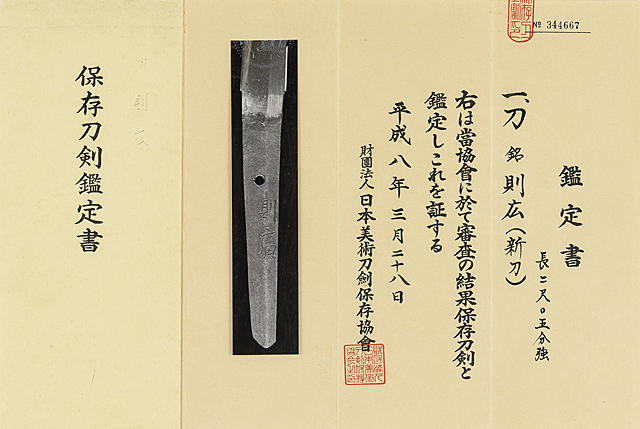 № 344667
鑑定書
一、刀 銘 則広(新刀)
長二尺〇五分強
右は當協會に於て審査の結果保存刀剣と
鑑定しこれを証する
平成八年三月二十八日
財團法人 日本美術刀剣保存協會
則廣
保存刀剣鑑定書